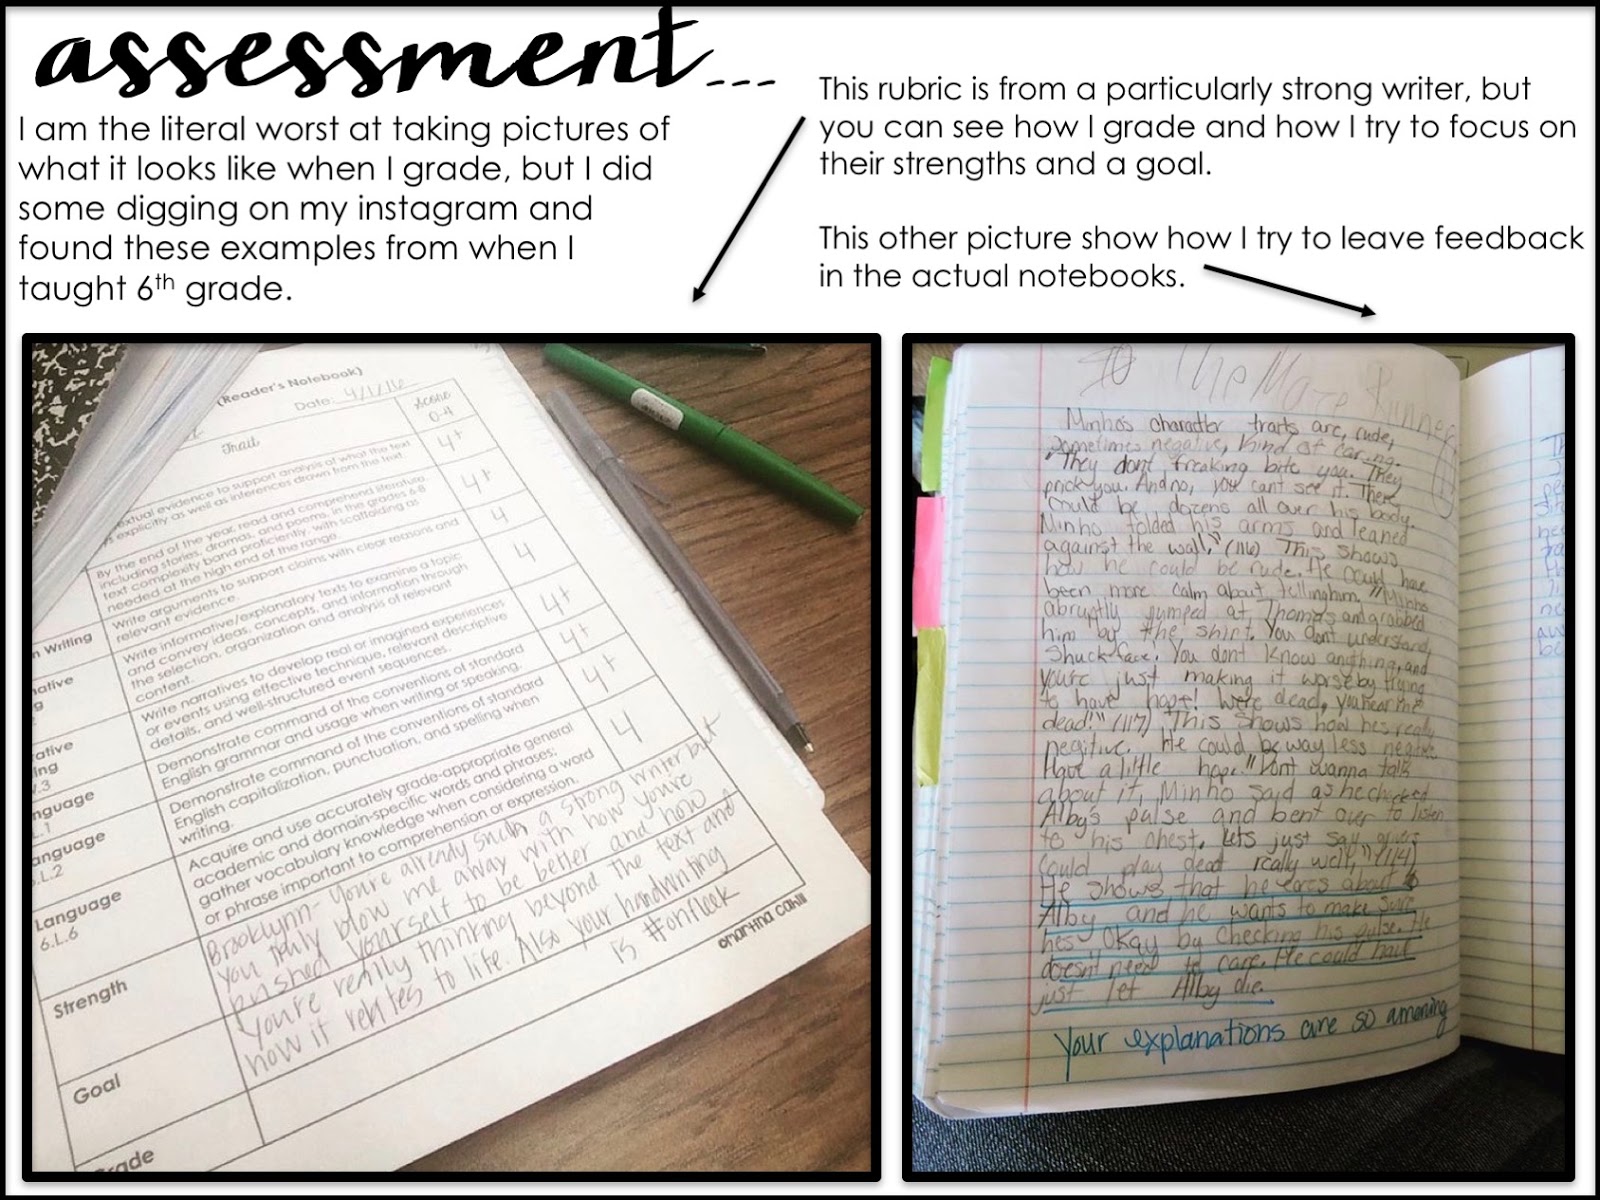 assessment...
I am the literal worst at taking pictures of
what it looks like when I grade, but I did
some digging on my instagram and
found these examples from when I
taught 6th grade.
This rubric is from a particularly strong writer, but
you can see how I grade and how I try to focus on
their strengths and a goal.
This other picture show how I try to leave feedback
in the actual notebooks.
(Reader's Notebook)
Date: 4/1/16
Trait
Score
0-4
textual evidence to support analysis of what the text
explicitly as well as inferences drawn from the text.
4+
By the end of the year, read and comprehend literature,
including stories, dramas, and poems, in the grades 6-8
text complexity band proficiently, with scaffolding as
needed at the high end of the range.
4+
Writing
Write arguments to support claims with clear reasons and
relevant evidence.
4
Write informative/explanatory texts to examine a topic
and convey ideas, concepts, and information through
the selection, organization and analysis of relevant
content.
4
Write narratives to develop real or imagined experiences
or events using effective technique, relevant descriptive
details, and well-structured event sequences.
4+
Demonstrate command of the conventions of standard
English grammar and usage when writing or speaking.
4+
Demonstrate command of the conventions of standard
English capitalization, punctuation, and spelling when
writing.
4+
Language
6.L.6
Acquire and use accurately grade-appropriate general
academic and domain-specific words and phrases;
gather vocabulary knowledge when considering a word
or phrase important to comprehension or expression.
4
Strength
Brooklynn- You're already such a strong writer but
you truly blow me away with how you've
pushed yourself to be better and how
you're really thinking beyond the text and
how it relates to life. Also your handwriting
is #onfleek
Goal
©martina cahill
The Maze Runner
Minho's character traits are, rude,
sometimes negative, kind of caring.
"They dont freaking bite you. They
prick you. And no, you cant see it. There
could be dozens all over his body.
Minho folded his arms and leaned
against the wall," (116) This shows
how he could be rude. He could have
been more calm about telling him. "Minho
abruptly jumped at Thomas and grabbed
him by the shirt. You dont understand,
shuck-face! You dont know anything, and
youre just making it worse by trying
to have hope! We're dead, you hear me
dead!" (117) This shows how hes really
negitive. He could be way less negative
Have a little hope. "Dont wanna talk
about it, Minho said as he checked
Albys pulse and bent over to listen
to his chest. Lets just say
could play dead really well," (114)
He shows that he cares about
Alby and he wants to make sure
hes okay by checking his pulse. He
doesn't need to care. He could have
just let Alby die.
Your explanations are so amazing